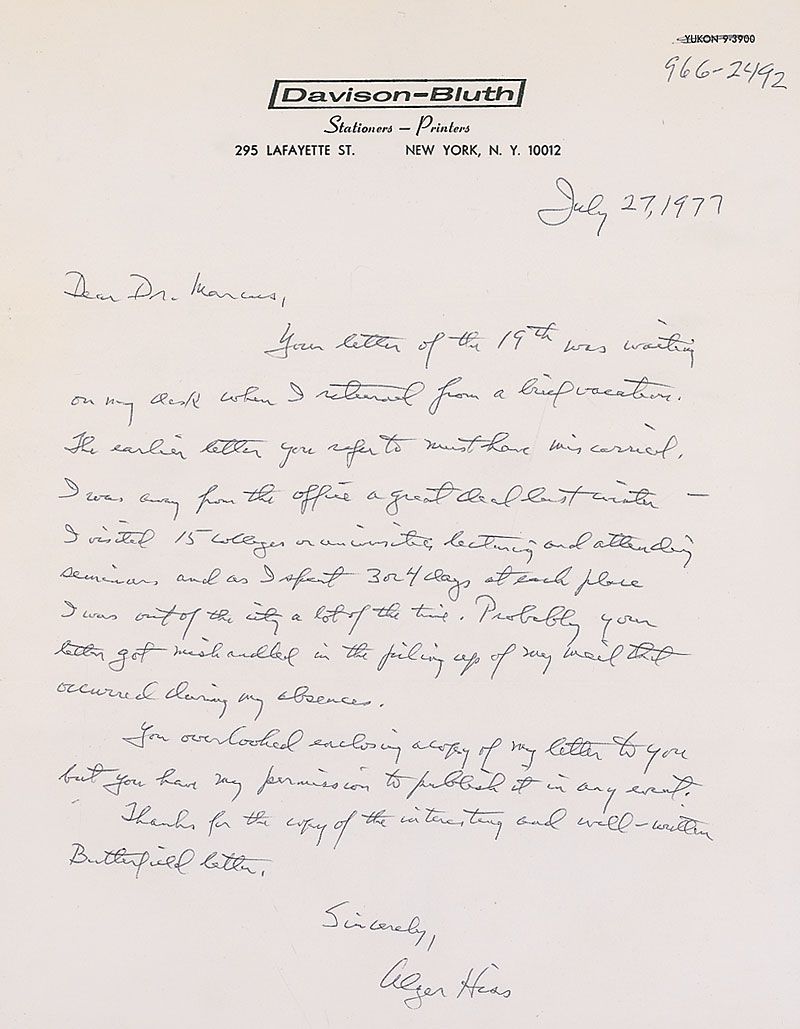 YUKON 9-3900
966-2492
Davison-Bluth
Stationers — Printers
295 LAFAYETTE ST. NEW YORK, N. Y. 10012
July 27, 1977
Dear Dr. Marcus,
Your letter of the 19th was waiting
on my desk when I returned from a brief vacation.
The earlier letter you refer to must have miscarried.
I was away from the office a great deal last winter —
I visited 15 colleges or universities lecturing and attending
seminars and as I spent 3 or 4 days at each place
I was out of the city a lot of the time. Probably your
letter got mishandled in the piling up of my mail that
occurred during my absences.
You overlooked enclosing a copy of my letter to you
but you have my permission to publish it in any event.
Thanks for the copy of the interesting and well-written
Butterfield letter.
Sincerely,
Alger Hiss